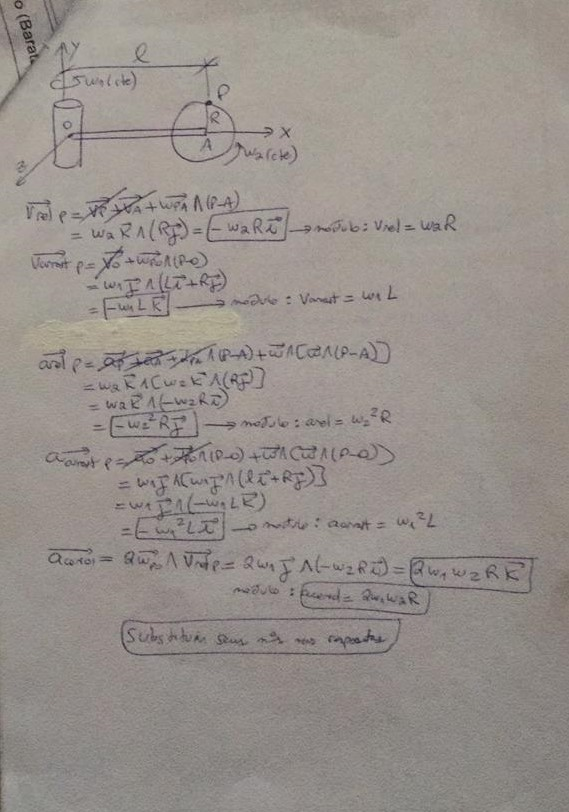 o (Barat
Y
l
w1(cte)
P
R
O
A
X
w2(cte)
z
Vrel P = VP + VA + WPA ∧ (P-A)
= w2 K ∧ (R j) = -w2 R i → módulo: Vrel = w2R
Varrast P = VO + wPO ∧ (P-O)
= w1 j ∧ (L i + R j)
= -w1 L K → módulo: Varrast = w1 L
arel P = aP + aA + wPA ∧ (P-A) + w ∧ [w ∧ (P-A)]
= w2 K ∧ [w2 K ∧ (R j)]
= w2 K ∧ (-w2 R i)
= -w2² R j → módulo: arel = w2² R
aarrast P = aO + ∧ (P-O) + w ∧ (w ∧ (P-O))
= w1 j ∧ [w1 j ∧ (l i + R j)]
= w1 j ∧ (-w1 L K)
= -w1² L i → módulo: aarrast = w1² L
acoriol = 2 wPO ∧ Vrel P = 2 w1 j ∧ (-w2 R i) = 2 w1 w2 R K
módulo: acoriol = 2w1w2R
Substituir seus nºs nas respostas